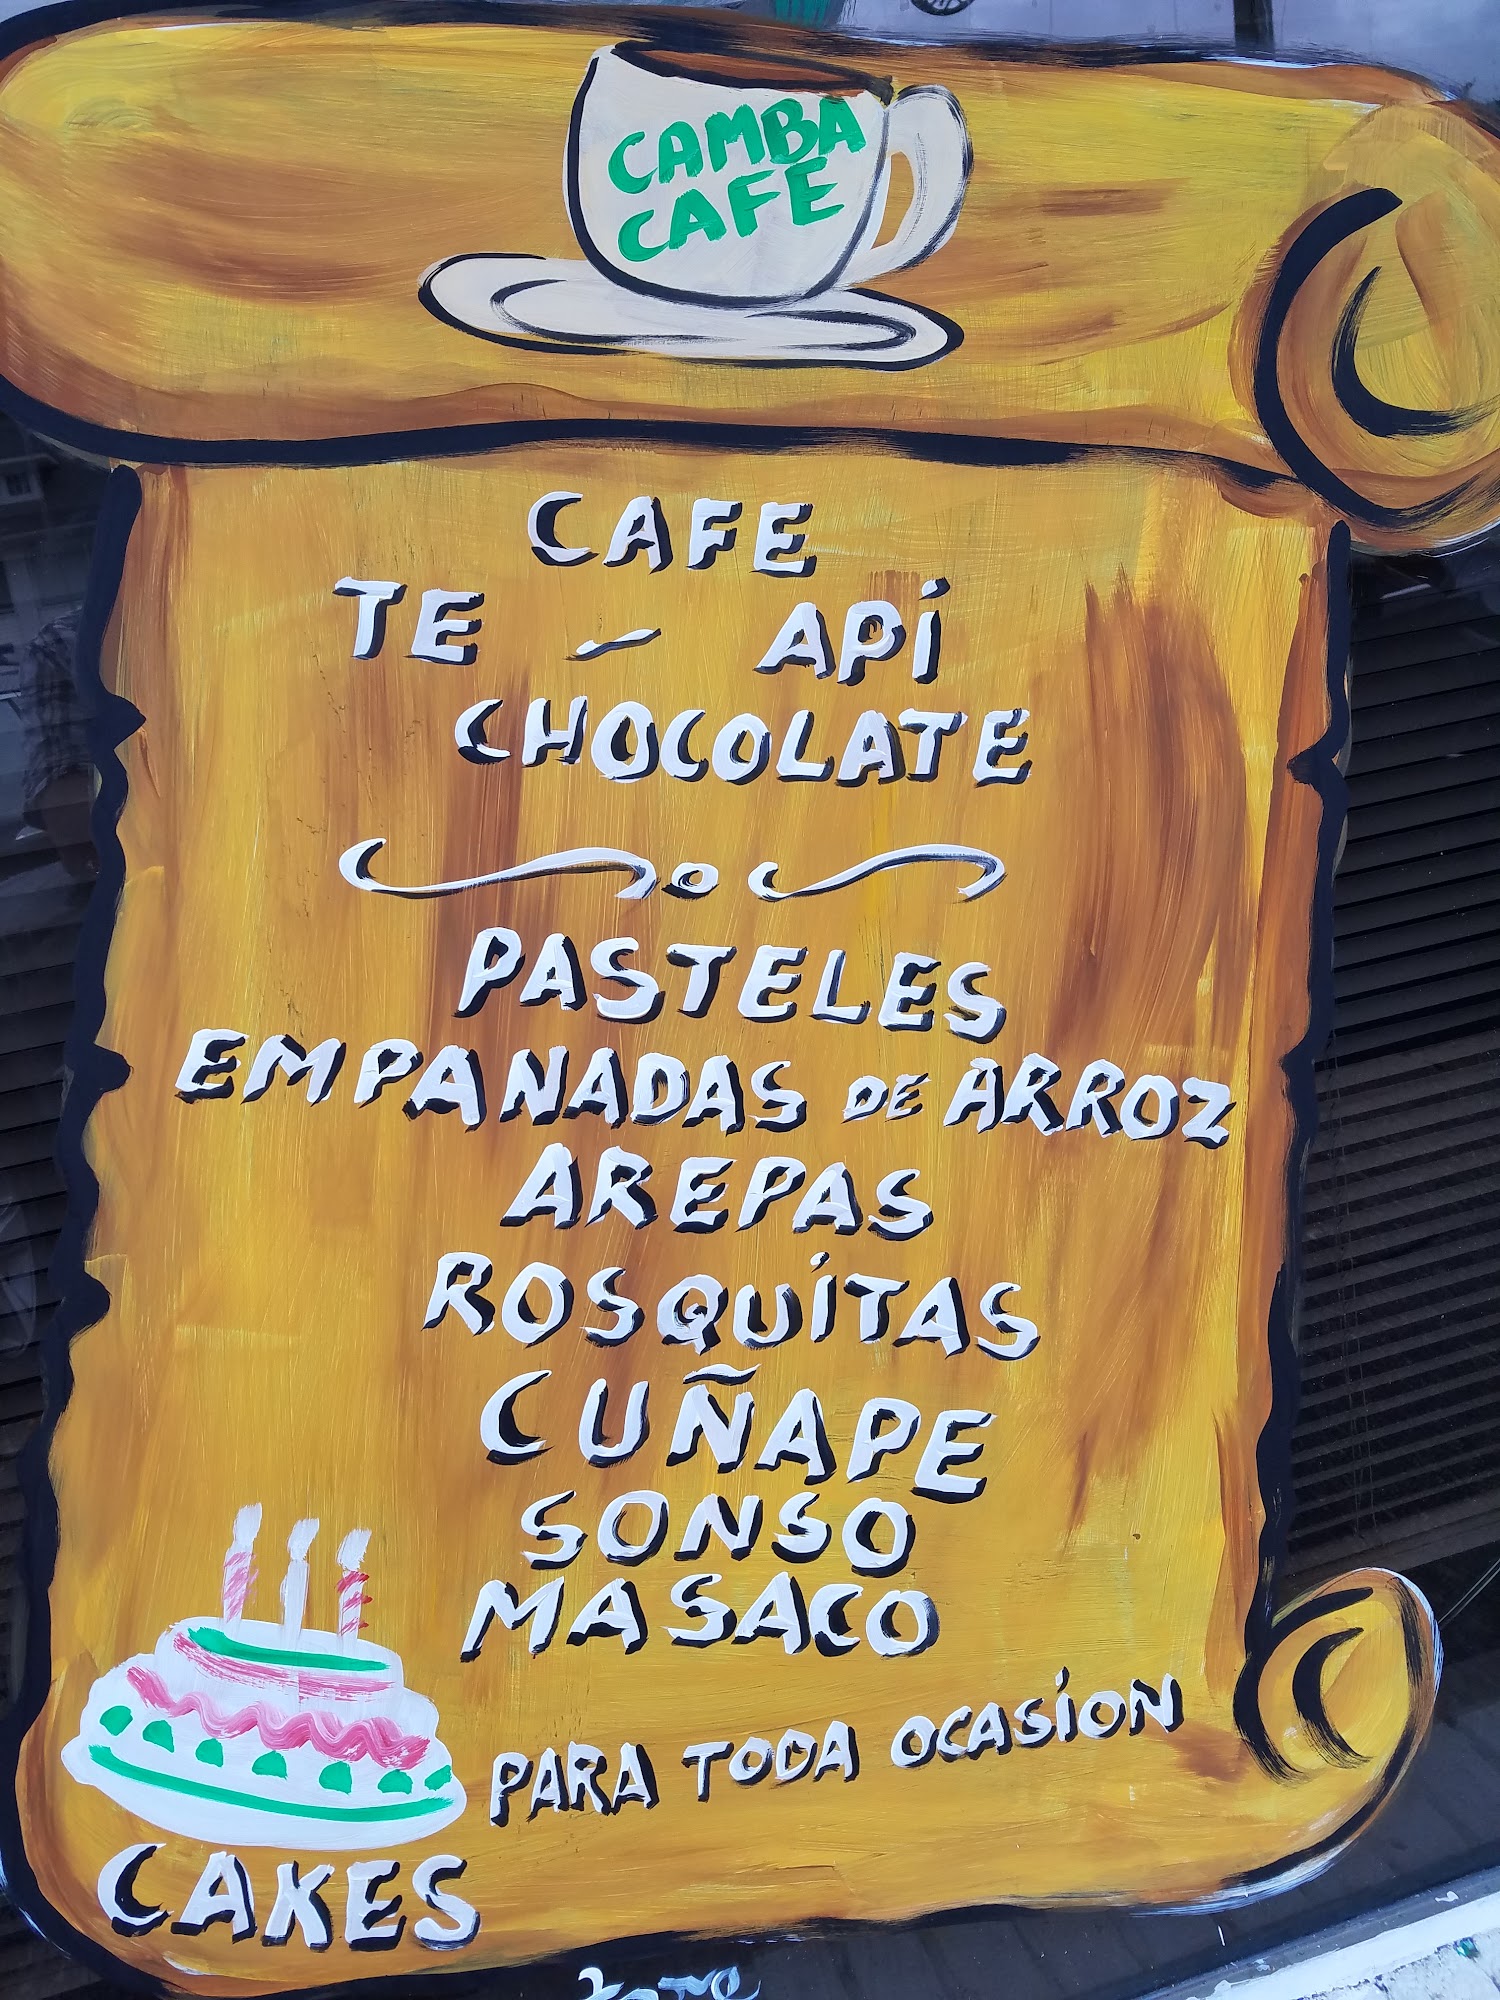 CAMBA
CAFE
CAFE
TE - APi
CHOCOLATE
PASTELES
EMPANADAS DE ARROZ
AREPAS
ROSQUiTAS
CUÑAPE
SONSO
MASACO
PARA TODA OCASiON
CAKES